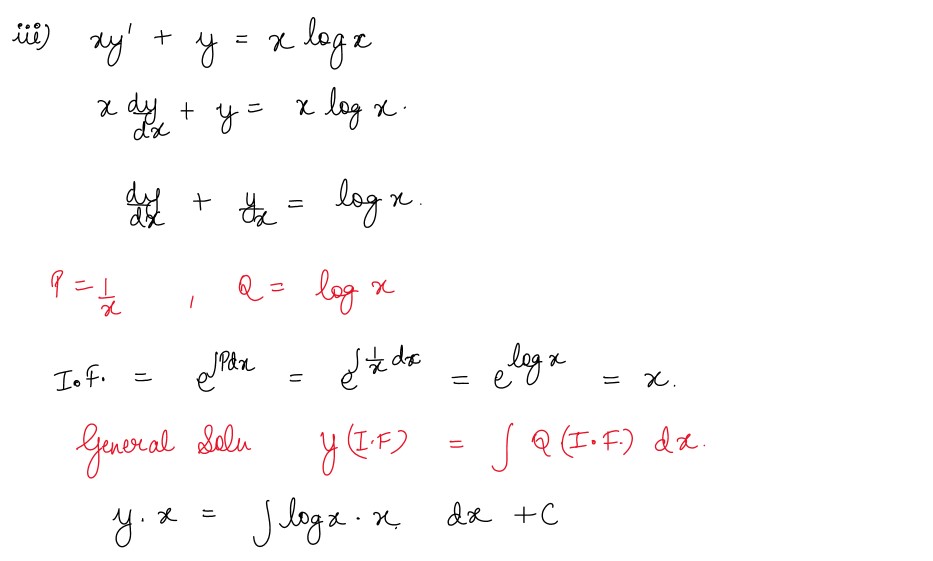 iii) xy' + y = x log x
x dy/dx + y = x log x.
dy/dx + y/x = log x.
P = 1/x , Q = log x
I.F. = e^∫Pdx = e^∫1/x dx = e^log x = x.
General Solu y (I.F) = ∫ Q (I.F.) dx.
y. x = ∫ log x . x. dx + C